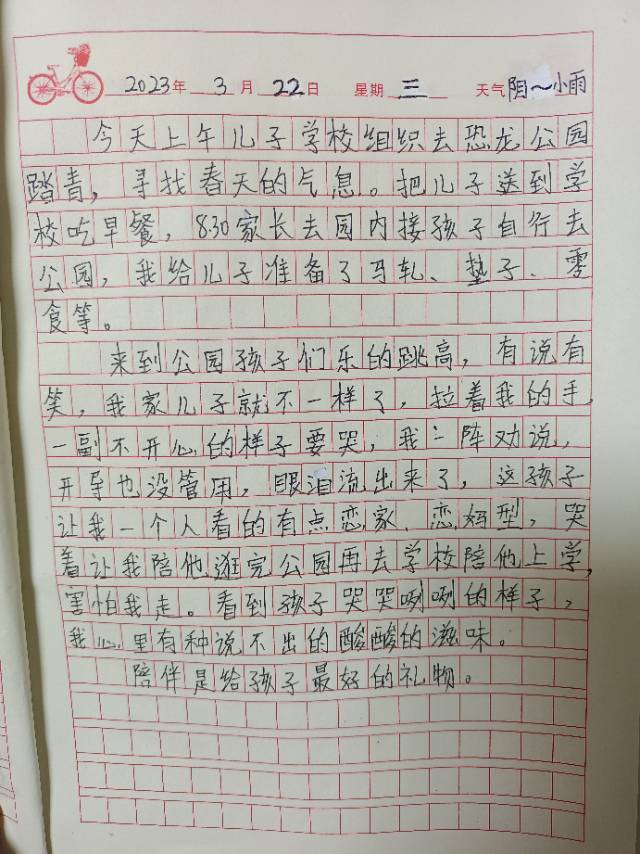 2023年 3月 22日 星期 三 天气 阴~小雨
今天上午儿子学校组织去恐龙公园
踏青，寻找春天的气息。把儿子送到学
校吃早餐，8:30家长去园内接孩子自行去
公园，我给儿子准备了马轧、垫子、零
食等。
来到公园孩子们乐的跳高，有说有
笑，我家儿子就不一样了，拉着我的手，
一副不开心的样子要哭，我一阵劝说，
开导也没管用，眼泪流出来了，这孩子
让我一个人看的有点恋家、恋妈型，哭
着让我陪他逛完公园再去学校陪他上学，
害怕我走。看到孩子哭哭咧咧的样子，
我心里有种说不出的酸酸的滋味。
陪伴是给孩子最好的礼物。